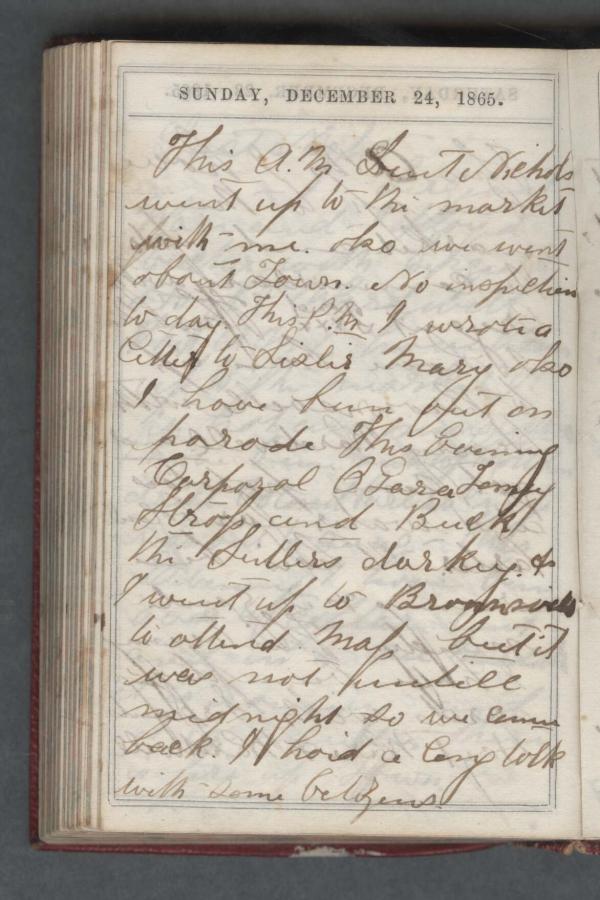 SUNDAY, DECEMBER 24, 1865.
This A.M Lieut Nichols
went up to the market
with me. also we went
about Town. No inspection
to day. This P.M I wrote a
letter to Sister Mary also
I have been out on
parade This Evening
Corporal OGara
Strop and Buck
the Sutlers darkey &
I went up to Brownsville
to attend Mas but it
was not untill
midnight so we came
back. I haid a long talk
with some Citizens.